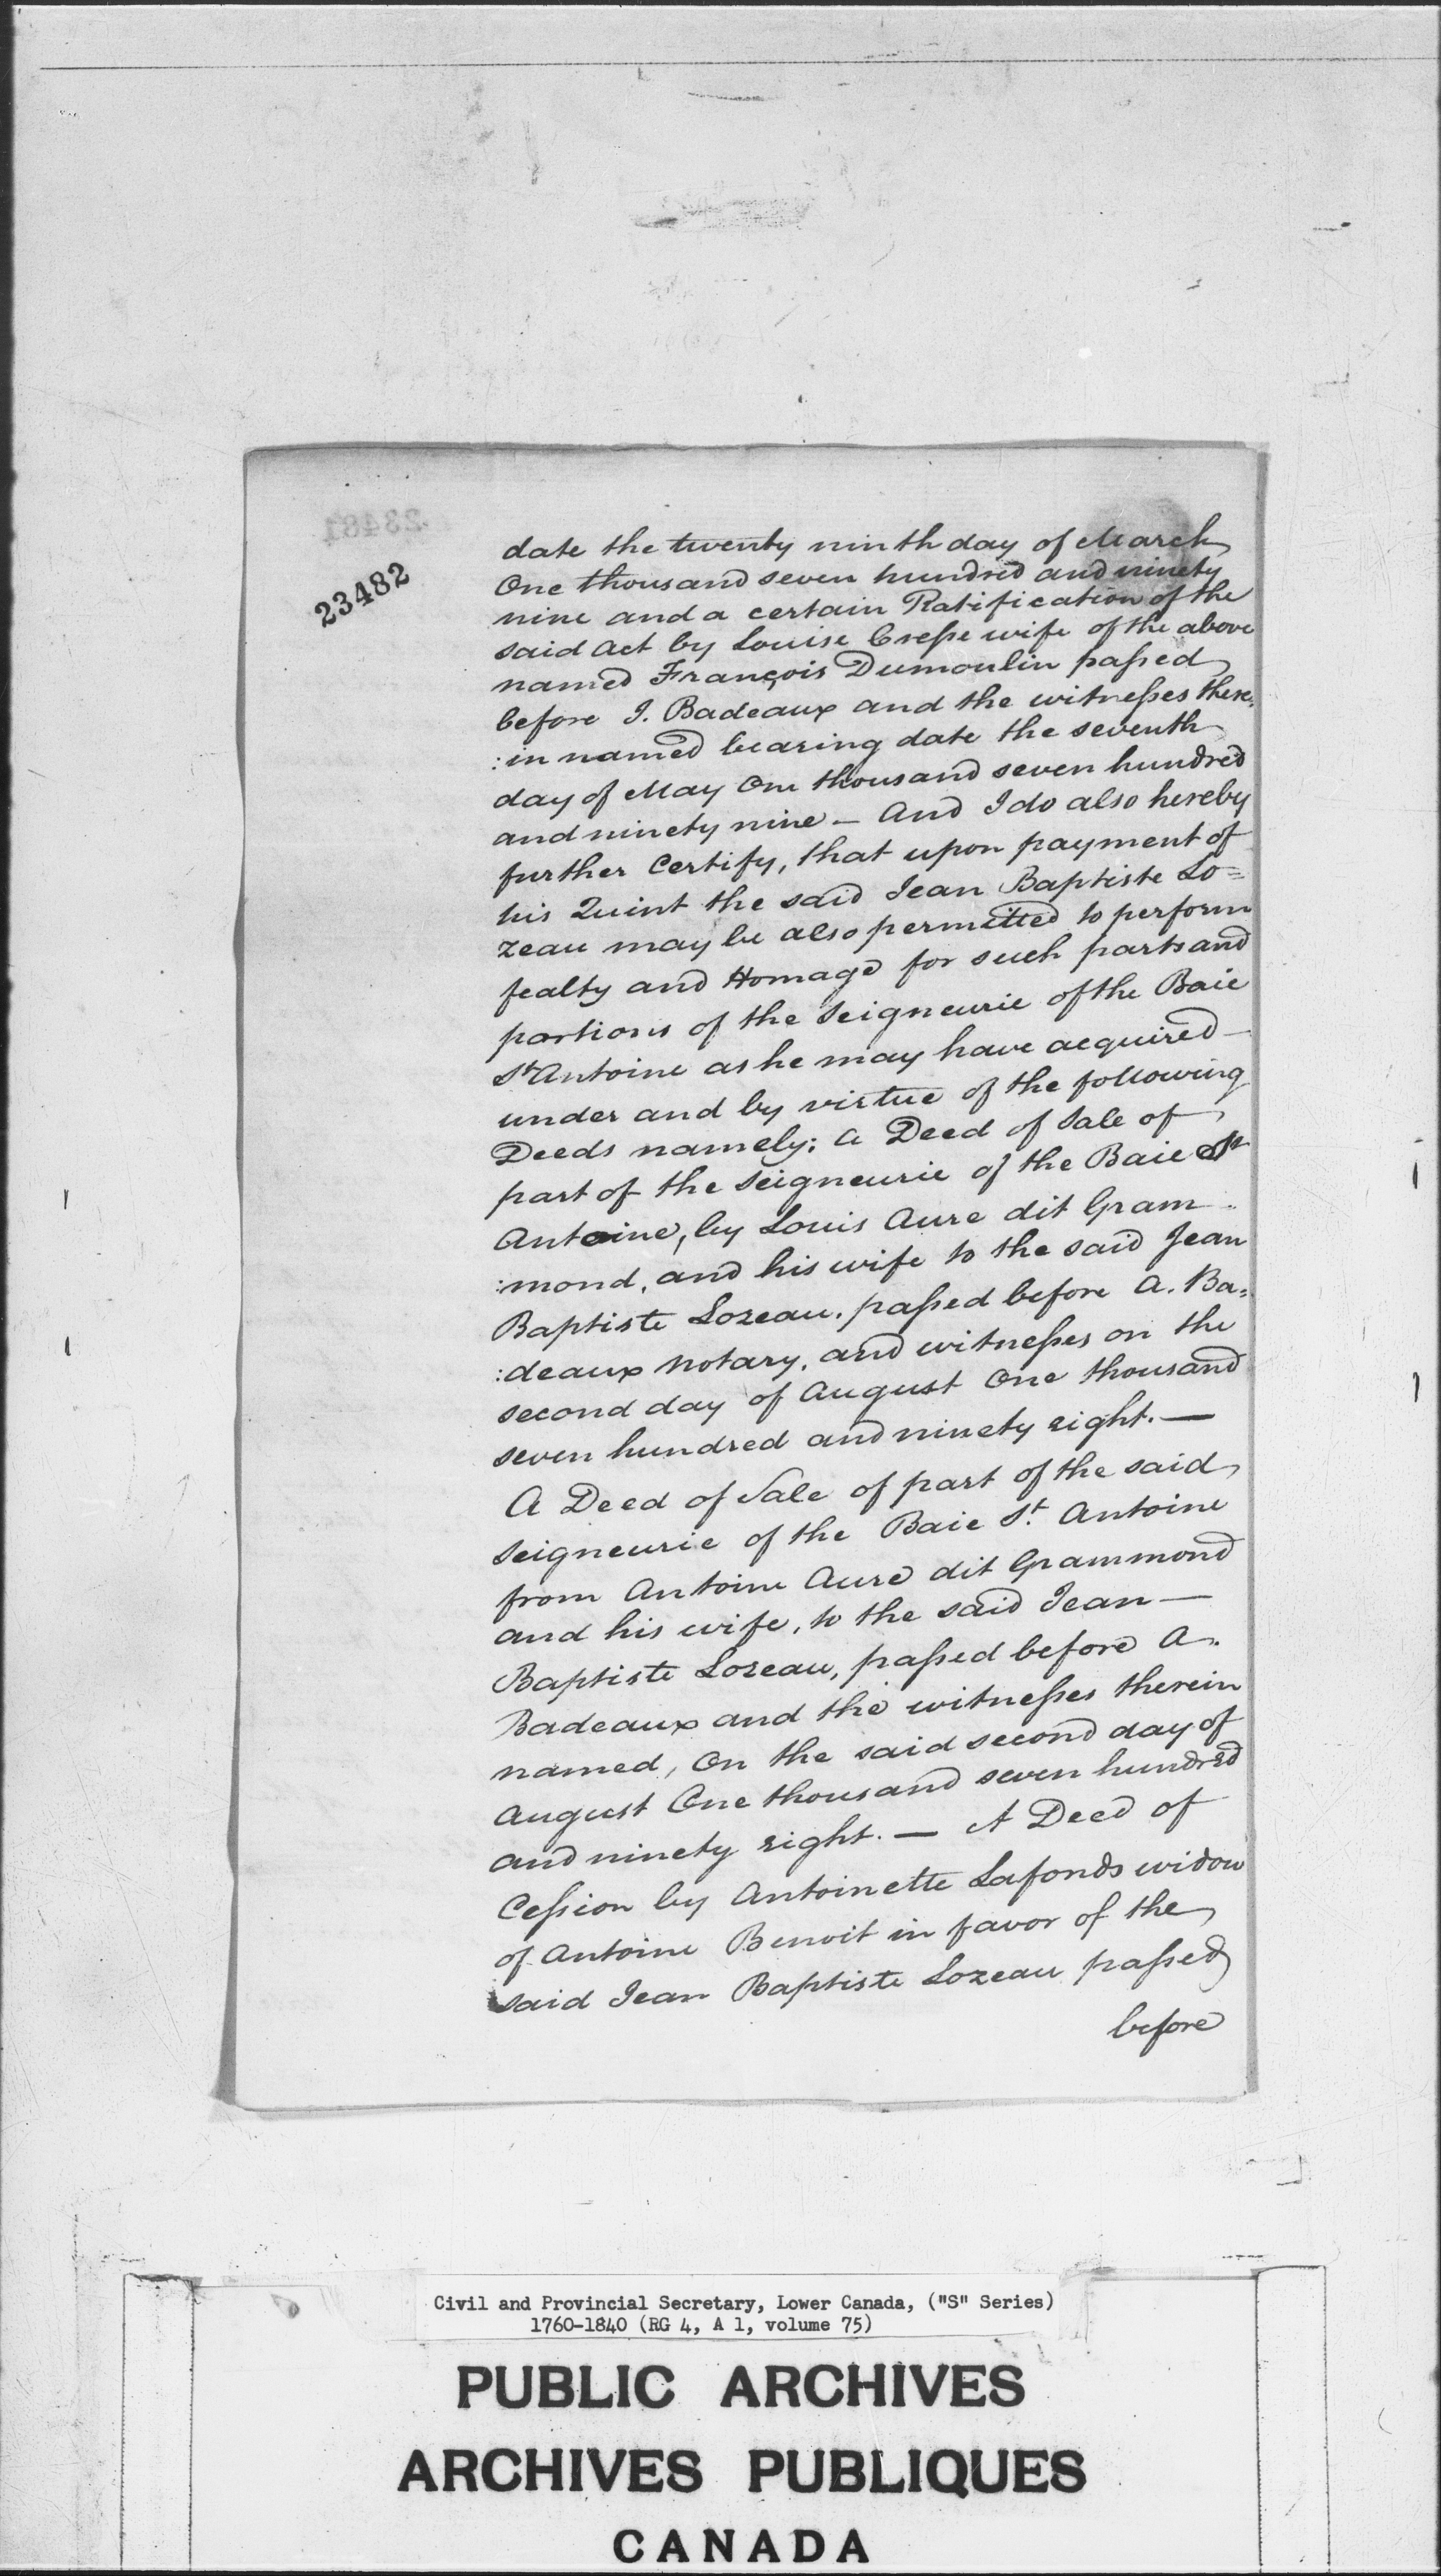 23482
date the twenty ninth day of March
One thousand seven hundred and ninety
nine and a certain Ratification of the
said Act by Louise Cresse wife of the above
named François Dumoulin passed
before J. Badeaux and the witnesses there:
:in named bearing date the seventh
day of May One thousand seven hundred
and ninety nine — And I do also hereby
further Certify, that upon payment of
his Quint the said Jean Baptiste Lo=
zeau may be also permitted to perform
fealty and Homage for such parts and
portions of the Seigneurie of the Baie
St Antoine as he may have acquired —
under and by virtue of the following
Deeds namely; A Deed of Sale of
part of the Seigneurie of the Baie St
Antoine, by Louis Aure dit Gram-
:mond, and his wife to the said Jean
Baptiste Lozeau. passed before A. Ba:
:deaux Notary, and witnesses on the
second day of August One thousand
seven hundred and ninety eight. —
A Deed of Sale of part of the said
Seigneurie of the Baie St. Antoine
from Antoine Aure dit Grammond
and his wife, to the said Jean —
Baptiste Lozeau, passed before A.
Badeaux and the witnesses therein
named, On the said second day of
August One thousand seven hundred
and ninety eight. — A Deed of
Cession by Antoinette Lafonds widow
of Antoine Benoit in favor of the
said Jean Baptiste Lozeau passed
before
Civil and Provincial Secretary, Lower Canada, ("S" Series)
1760-1840 (RG 4, A 1, volume 75)
PUBLIC ARCHIVES
ARCHIVES PUBLIQUES
CANADA